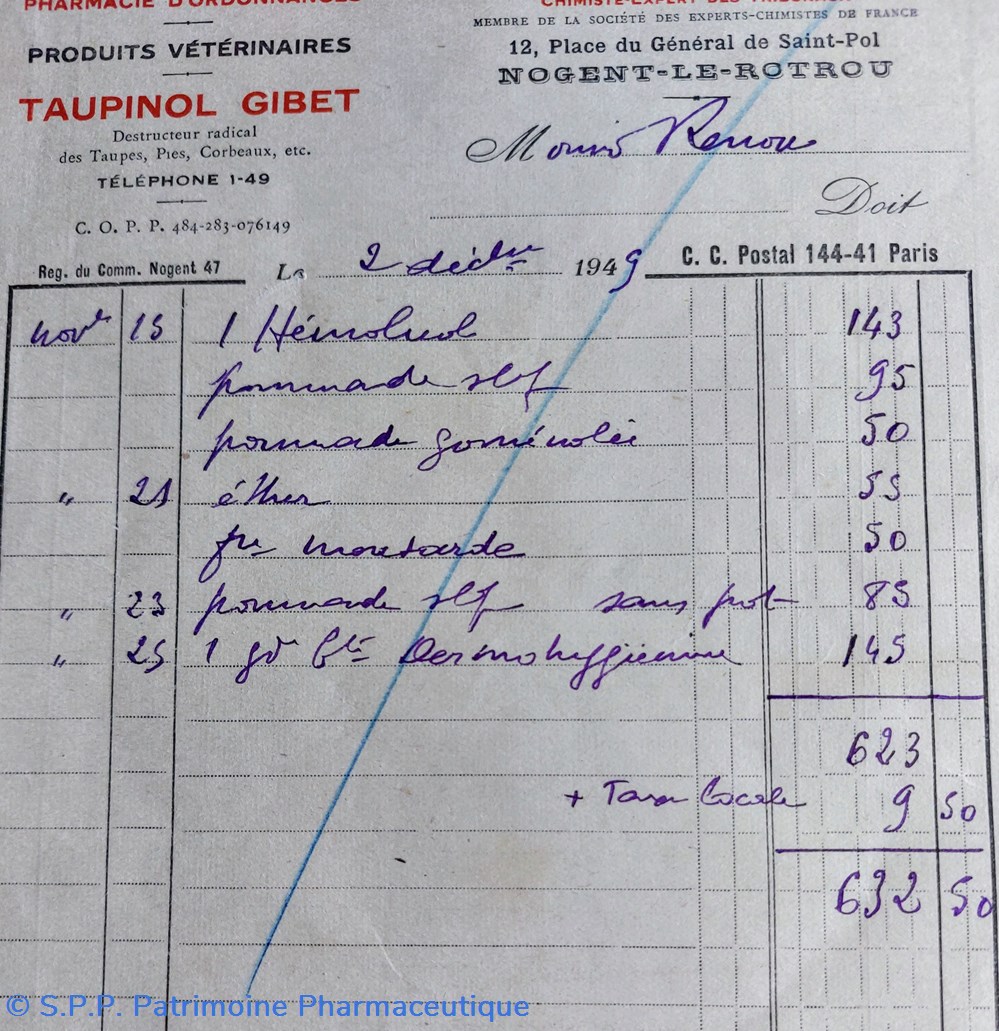 PHARMACIE D'ORDONNANCES
PRODUITS VÉTÉRINAIRES
TAUPINOL GIBET
Destructeur radical
des Taupes, Pies, Corbeaux, etc.
TÉLÉPHONE 1-49
C. O. P. P. 484-283-076149
Reg. du Comm. Nogent 47
CHIMISTE-EXPERT DES TRIBUNAUX
MEMBRE DE LA SOCIÉTÉ DES EXPERTS-CHIMISTES DE FRANCE
12, Place du Général de Saint-Pol
NOGENT-LE-ROTROU
M Renou
Doit
Le 2 décbre 1949
C. C. Postal 144-41 Paris
novbre 15 1 Hémoluol 143
pommade slf 95
pommade goménolée 50
" 21 éther 55
fne moutarde 50
" 23 pommade slf sans pot 85
" 25 1 gd bte Dermohygiénine 145
623
+ Taxe locale 9 50
632 50
© S.P.P. Patrimoine Pharmaceutique